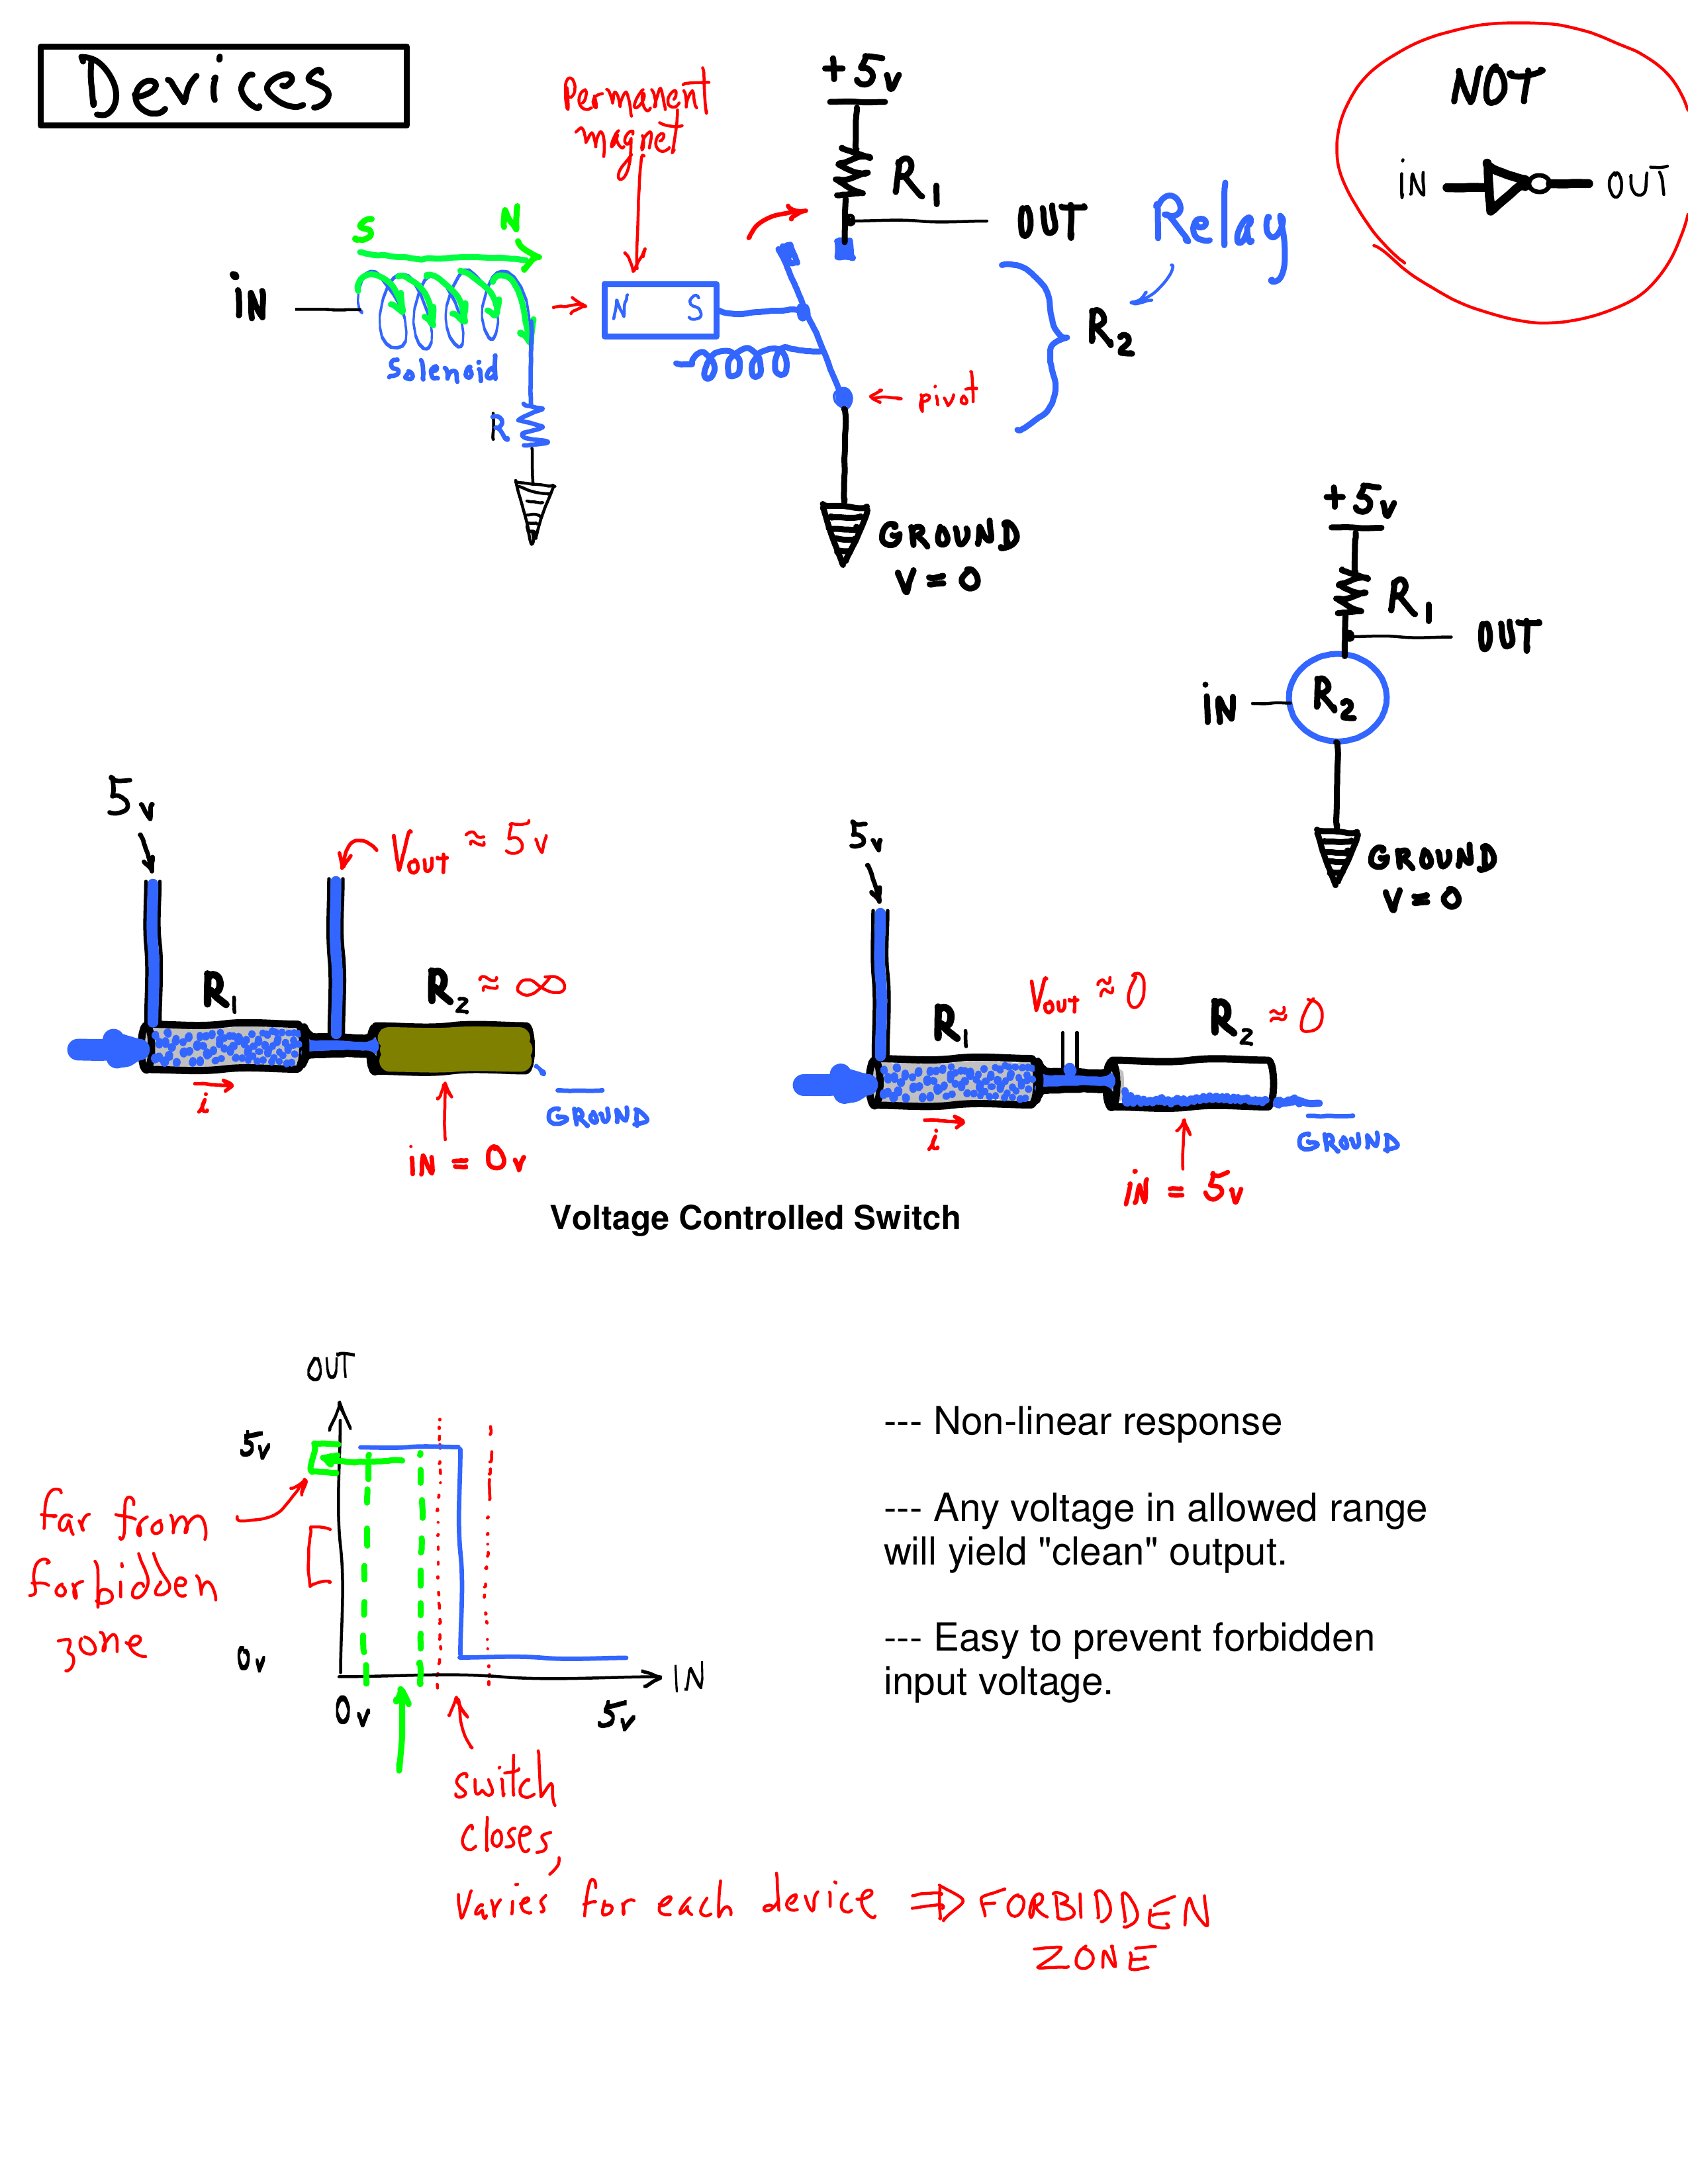 Devices
Permanent
magnet
+5v
R1
OUT
Relay
NOT
iN
OUT
S
N
iN
Solenoid
R
N S
R2
pivot
GROUND
V = 0
+5v
R1
OUT
iN
R2
GROUND
V = 0
5v
Vout ≈ 5v
R1
R2 ≈ ∞
i
GROUND
iN = 0v
5v
Vout ≈ 0
R1
R2 ≈ 0
i
GROUND
iN = 5v
Voltage Controlled Switch
OUT
5v
far from
forbidden
zone
0v
IN
0v
5v
switch
closes,
varies for each device ⇒ FORBIDDEN
ZONE
--- Non-linear response
--- Any voltage in allowed range
will yield "clean" output.
--- Easy to prevent forbidden
input voltage.